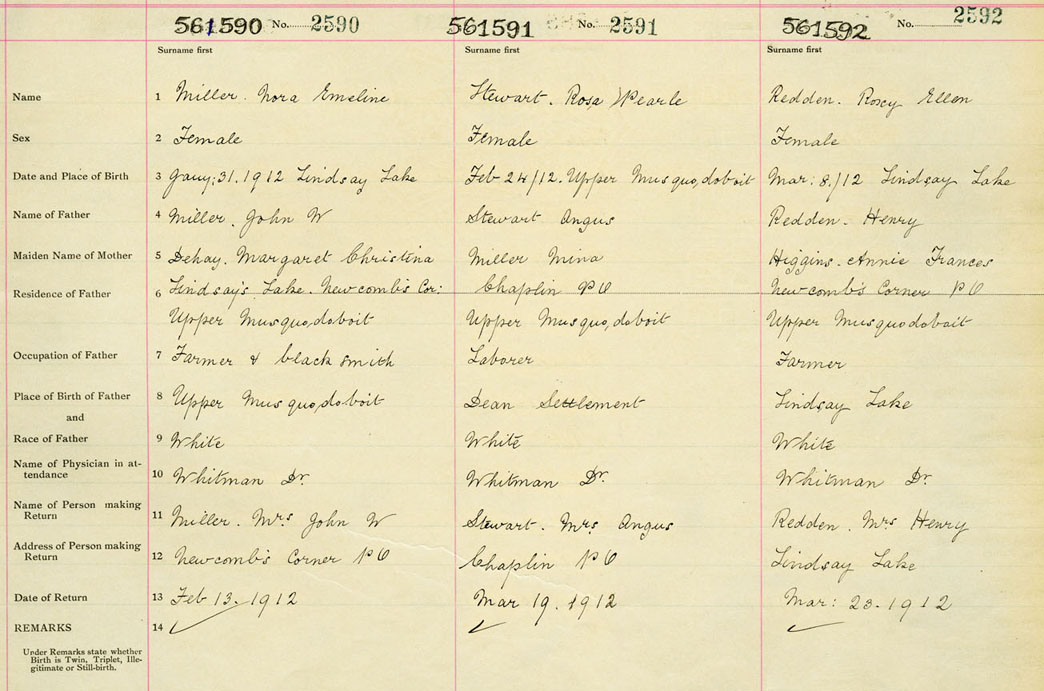 561590 No. 2590 561591 No. 2591 561592 No. 2592
Surname first Surname first Surname first
Name 1 Miller. Nora Emeline Stewart. Rosa Pearle Redden. Roxy Ellen
Sex 2 Female Female Female
Date and Place of Birth 3 Jany; 31. 1912 Lindsay Lake Feb 24/12. Upper Musquodoboit Mar: 8./12 Lindsay Lake
Name of Father 4 Miller. John W Stewart Angus Redden. Henry
Maiden Name of Mother 5 Dehay. Margaret Christina Miller Mina Higgins. Annie Frances
Residence of Father 6 Lindsay's Lake. Newcomb's Cor: Chaplin PO Newcomb's Corner PO
Upper Musquodoboit Upper Musquodoboit Upper Musquodoboit
Occupation of Father 7 Farmer & black smith Laborer Farmer
Place of Birth of Father 8 Upper Musquodoboit Dean Settlement Lindsay Lake
and
Race of Father 9 White White White
Name of Physician in at-
tendance 10 Whitman Dr. Whitman Dr. Whitman Dr.
Name of Person making
Return 11 Miller. Mrs John W Stewart. Mrs Angus Redden. Mrs Henry
Address of Person making
Return 12 Newcomb's Corner PO Chaplin PO Lindsay Lake
Date of Return 13 Feb 13. 1912 Mar 19. 1912 Mar: 23. 1912
REMARKS 14
Under Remarks state whether
Birth is Twin, Triplet, Ille-
gitimate or Still-birth.